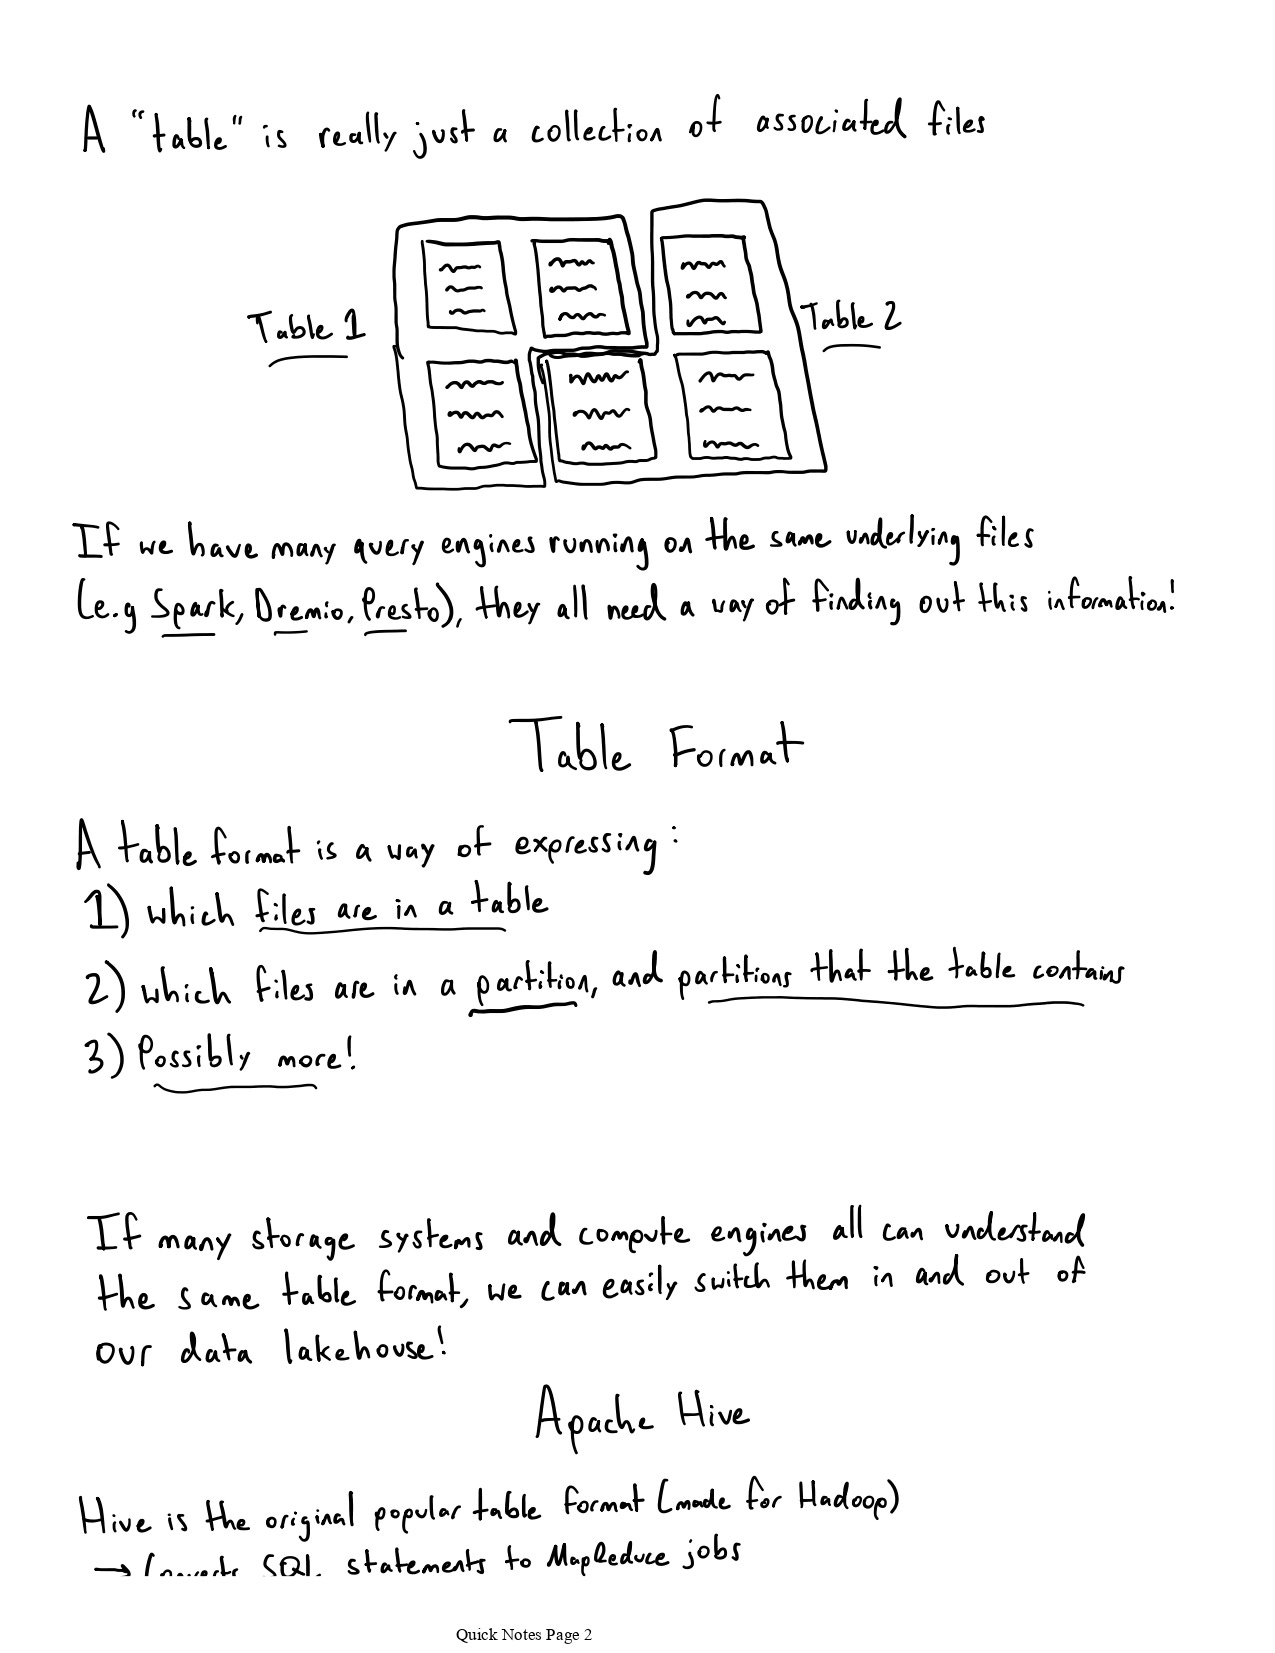 A "table" is really just a collection of associated files
Table 1
Table 2
If we have many query engines running on the same underlying files
(e.g Spark, Dremio, Presto), they all need a way of finding out this information!
Table Format
A table format is a way of expressing:
1) which files are in a table
2) which files are in a partition, and partitions that the table contains
3) Possibly more!
If many storage systems and compute engines all can understand
the same table format, we can easily switch them in and out of
our data lakehouse!
Apache Hive
Hive is the original popular table format (made for Hadoop)
→ Converts SQL statements to MapReduce jobs
Quick Notes Page 2